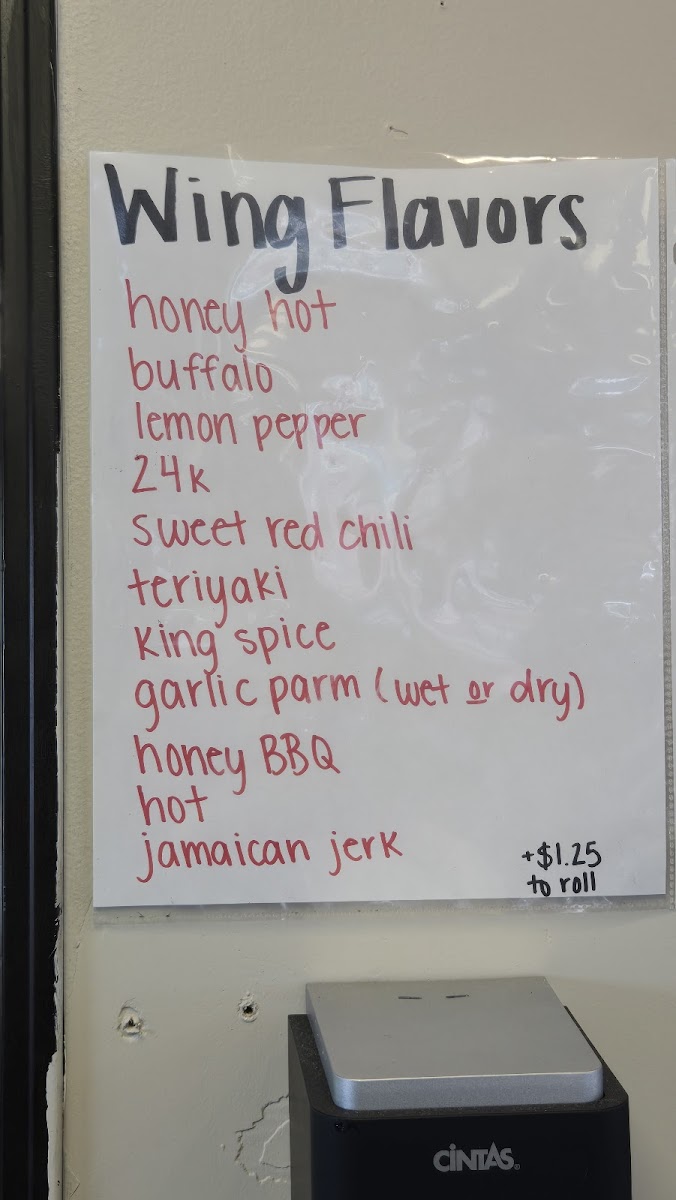 Wing Flavors
honey hot
buffalo
lemon pepper
24k
sweet red chili
teriyaki
king spice
garlic parm (wet or dry)
honey BBQ
hot
jamaican jerk
+$1.25
to roll
CINTAS®